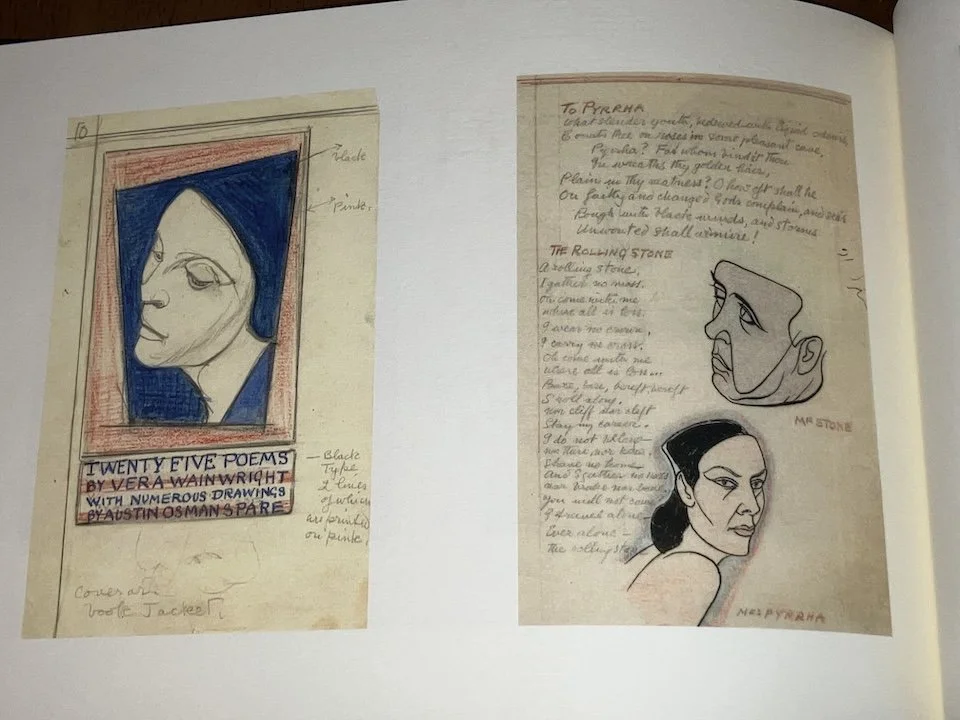 Black
Pink.
TWENTY FIVE POEMS
BY VERA WAINWRIGHT
WITH NUMEROUS DRAWINGS
BY AUSTIN OSMAN SPARE
— Black
Type
2 lines
of which
are printed
on pink.
Cover or
book Jacket.
TO PYRRHA
What slender youth, bedewed with liquid odours,
Courts thee on roses in some pleasant cave,
Pyrrha? For whom bind'st thou
In wreaths thy golden hair,
Plain in thy neatness? O how oft shall he
On faith and changed Gods complain, and seas
Rough with black winds, and storms
Unwonted shall admire!
THE ROLLING STONE
A rolling stone,
I gather no moss.
Oh come with me
where all is loss:
I wear no crown,
I carry no cross.
Oh come with me
where all is
Bare, bare, bereft bereft
I roll along.
nor cliff nor cleft
Stay my career.
I do not
no
I have no home
And I gather no moss
nor
You will not come
I travel alone
Ever alone —
The rolling stone
MR STONE
MRS PYRRHA